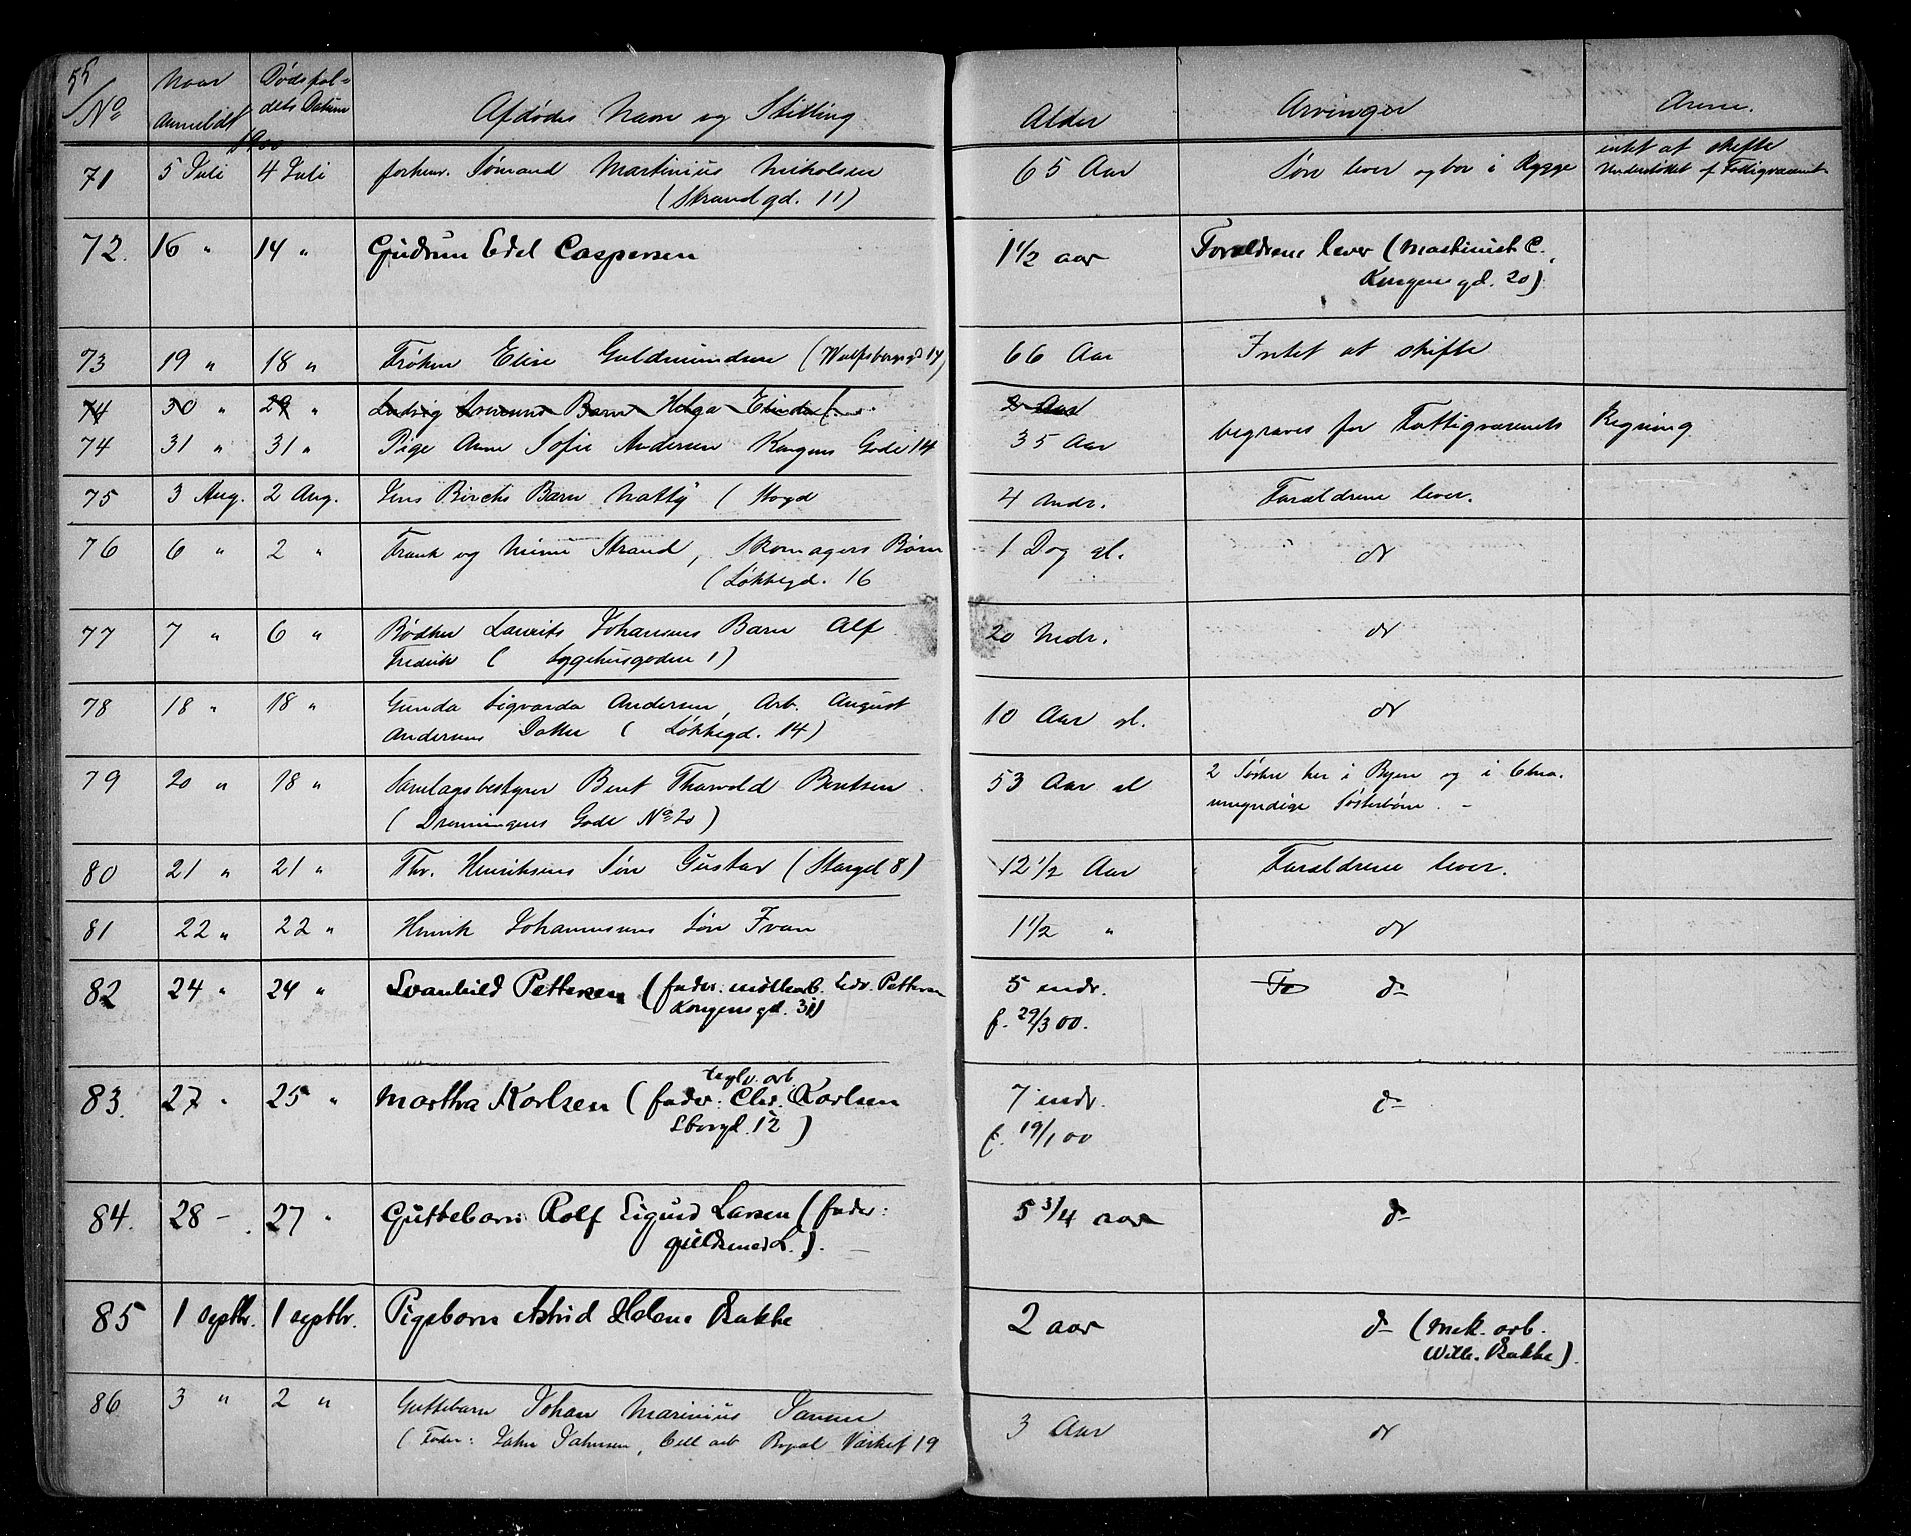 55
No Naar anmeldt 1900 Dødsfal-
dets Datum Afdødes Navn og Stilling Alder Arvinger Anm.
71 5 Juli 4 Juli forhenv. Sømand Martinius Nicholsen 65 Aar Søn lever og bor i Rygge intet at skifte
(Strandgd. 11) Understøttet af Fattigvæsenet
72. 16 " 14 " Gudrun Edel Caspersen 1 1/2 aar Forældrene lever (Maskinist C.,
Kongensgd. 20)
73 19 " 18 " Frøken Elise Guldmundsen (Wulfsbergsgd 14) 66 Aar Intet at skifte
74 30 " 29 " Ludvig Barn Helga 2 Aar
74 31 " 31 " Pige Anne Sofie Andersen Kongens Gade 14 35 Aar begraves for Fattigvæsenets Regning
75 3 Aug. 2 Aug. Jens Birchs Barn Natty ( 4 Mndr. Forældrene lever.
76 6 " 2 " Frank og Mimi Strand, Skomagers Børn 1 Dag gl. do
(Løkkegd. 16
77 7 " 6 " Bødker Laurits Johansens Barn Alf 20 Mdr. do
Fredrik ( Sygehusgaden 1)
78 18 " 18 " Gunda Sigvarda Andersen, Arb. August 10 Aar gl. do
Andersens Datter ( Løkkegd. 14)
79 20 " 18 " Samlagsbestyrer Bent Thorvald Bentsen 53 Aar gl 2 Søstre her i Byen og i Chra.
(Dronningens Gade No 20) umyndige Søsterbørn. -
80 21 " 21 " Thv. Henriksens Søn Gustav (Storgd 8) 12 1/2 Aar Forældrene lever.
81 22 " 22 " Henrik Johannesens Søn Ivan 1 1/2 " do
82 24 " 24 " Svanhild Pettersen (fader: Edv. Pettersen 5 mdr. Fo do
Kongensgd. 31) f. 29/3 00.
83. 27 " 25 " Martha Karlsen (fader: teglv. arb. Chr. Karlsen 7 mdr. do
12) f. 19/1 00
84. 28 - 27 " Guttebarn Rolf Sigurd Larsen (fader: 5 3/4 aar do
guldsmed L.).
85 1 septbr. 1 septbr. Pigebarn Astrid Helene Bakke 2 aar do (Mek. arb.
Wilh. Bakke).
86 3 " 2 " Guttebarn Johan Marinius Jansen 3 Aar do
(Fader: John Jahnsen, Cell arb Bygal Værket 19